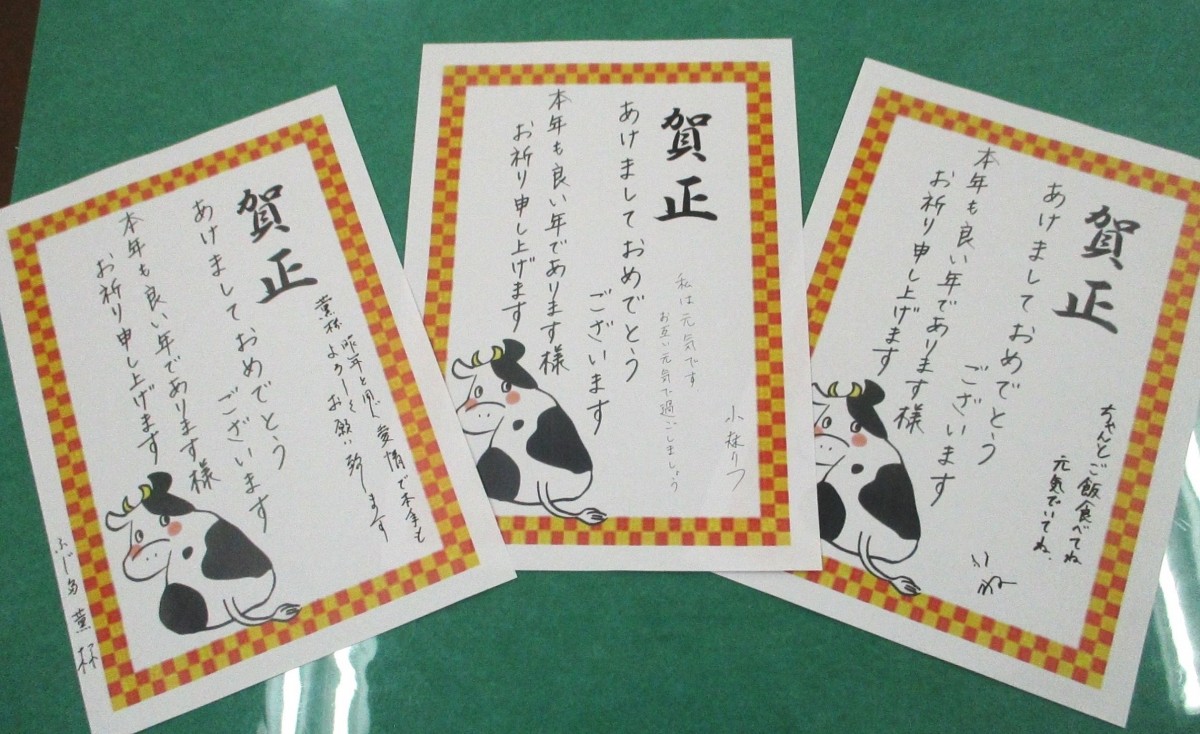 賀正
あけましておめでとう
ございます
本年も良い年であります様
お祈り申し上げます
昨年と同じ愛情で本年も
お願い致します
賀正
あけましておめでとう
ございます
本年も良い年であります様
お祈り申し上げます
私は元気です
お互い元気で過ごしましょう
小森りつ
賀正
あけましておめでとう
ございます
本年も良い年であります様
お祈り申し上げます
ちゃんとご飯食べてね
元気でいてね、